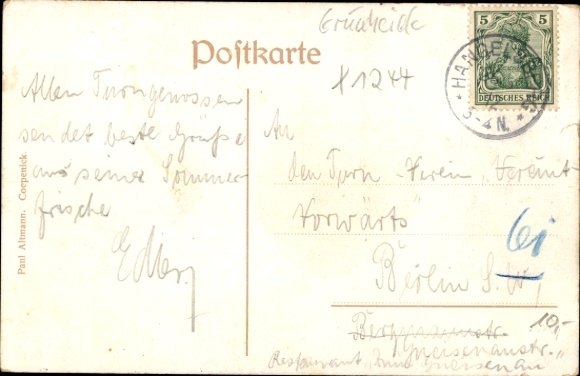 Grünheide
Postkarte
X1244
5 5
DEUTSCHES REICH
HANGELSBG.
3-4 N.
Allen Turngenossen
sendet beste Grüße
aus seiner Sommer-
frische
Paul Altmann. Coepenick.
An
den Turn-Verein
"Vorwärts"
6i
Berlin S.W,
10,-
Gneisenaustr.
Restaurant "Zum Gneisenau"